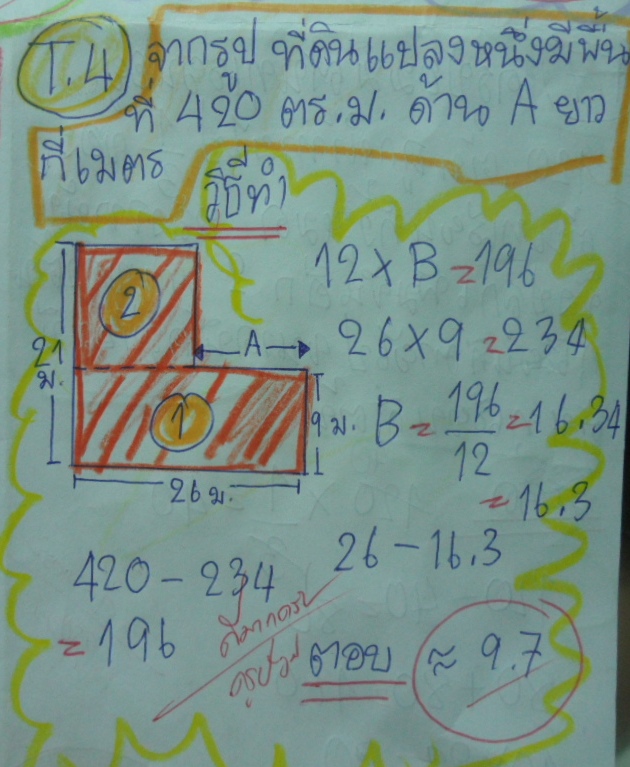 T.4 จากรูป ที่ดินแปลงหนึ่งมีพื้น
ที่ 420 ตร.ม. ด้าน A ยาว
กี่เมตร
วิธีทำ
2
21
ม.
A
1
9 ม.
26 ม.
12 × B = 196
26 × 9 = 234
B = 196/12 = 16.34
= 16.3
26 - 16.3
420 - 234
= 196
ดีมากครับ
ตอบ ≈ 9.7